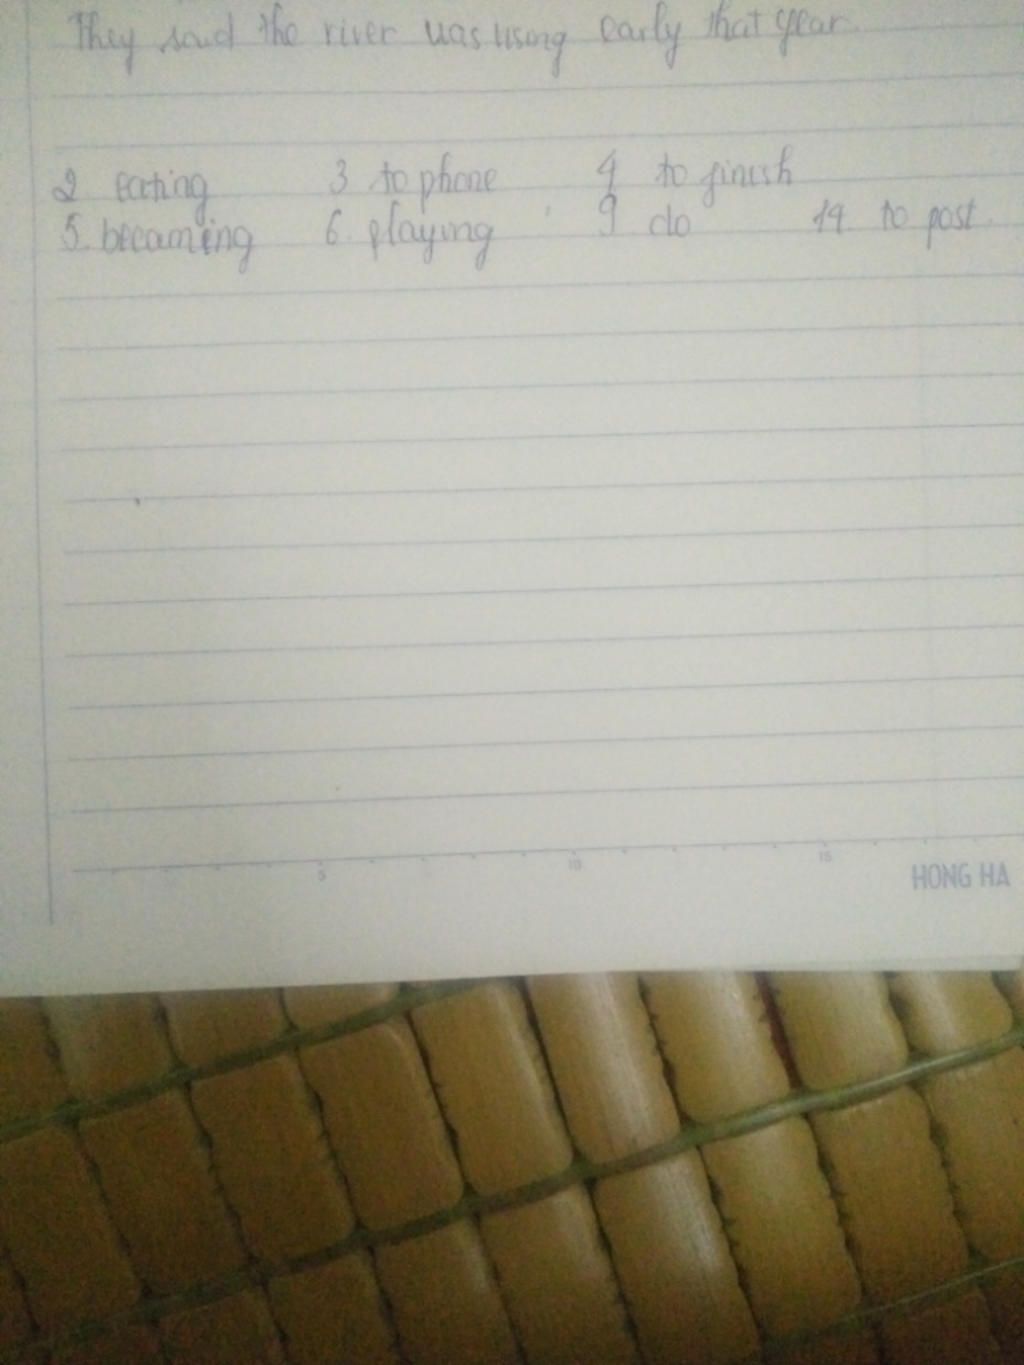 They said the river was rising early that year.
2 eating 3 to phone 4 to finish
5. becaming 6. playing 9. do 14. to post.
5 10 15
HONG HA